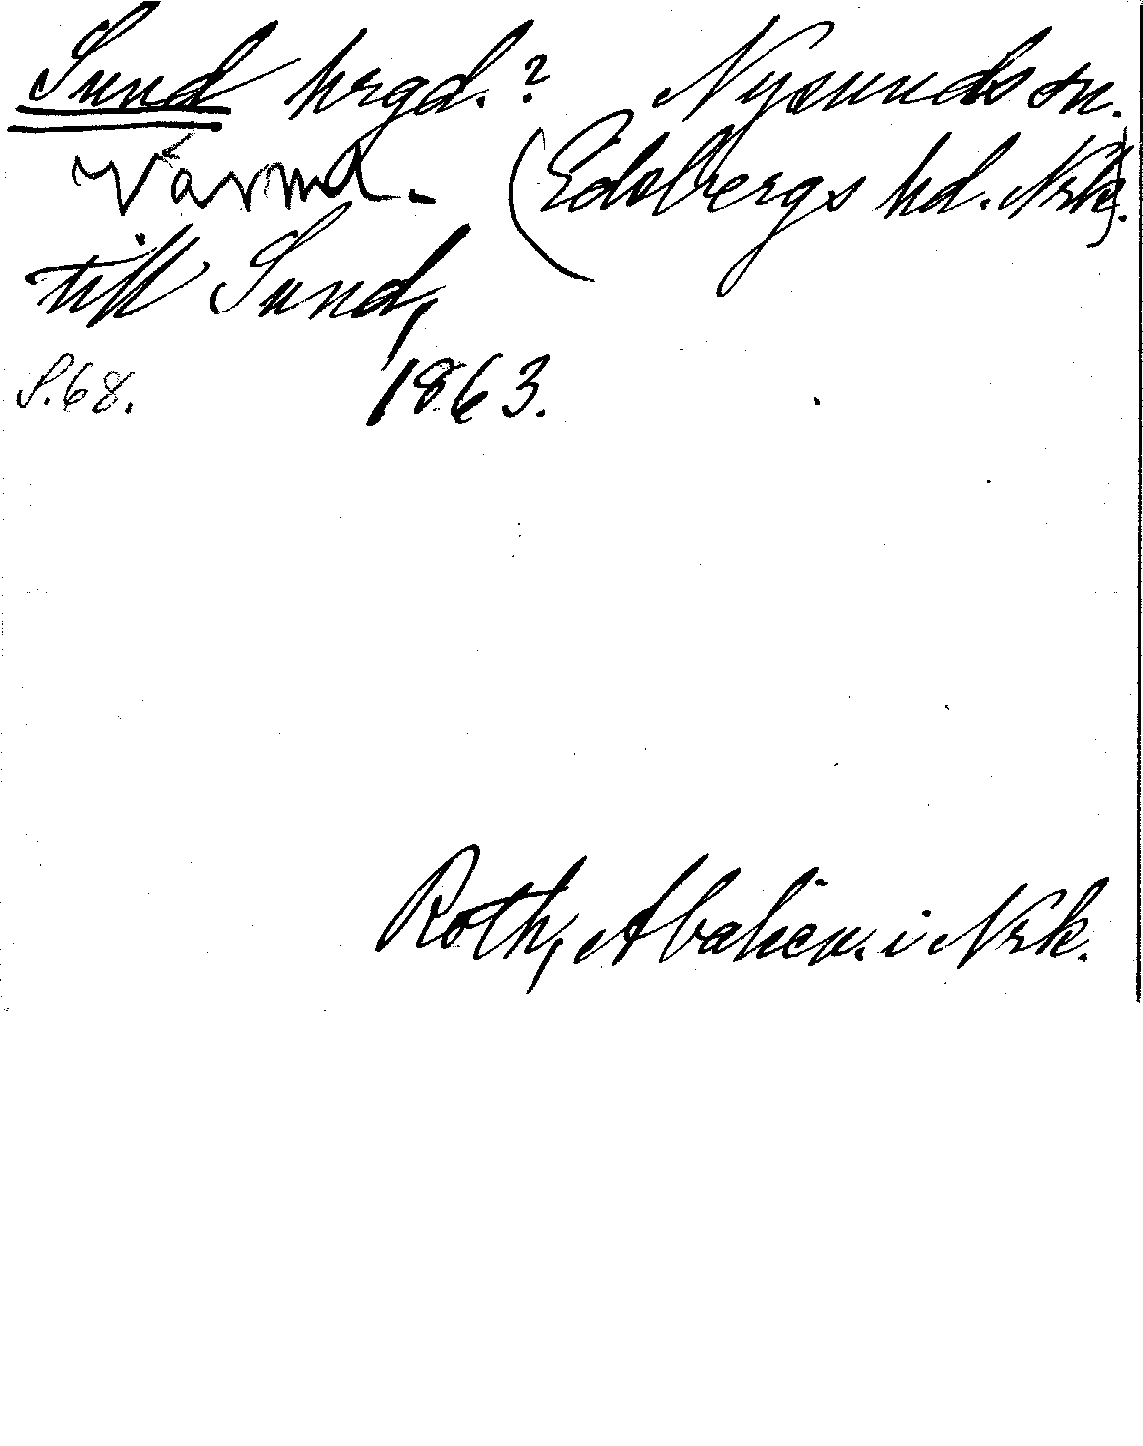 Sund hrgd.? Nysunds sn.
Värml. (Edsbergs hd. Nrk.)
till Sund,
S.68. 1863.
Roth, Abalien. i Nrk.